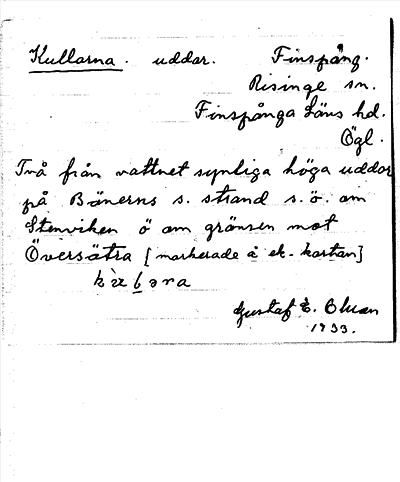 Kullarna. uddar. Finspång.
Risinge sn.
Finspånga Läns hd.
Ögl.
Två från vattnet synliga höga uddar
på Bönerns s. strand s.ö. om
Stenviken ö om gränsen mot
Översätra [markerade å ek. kartan]
Gustaf E.
1933.